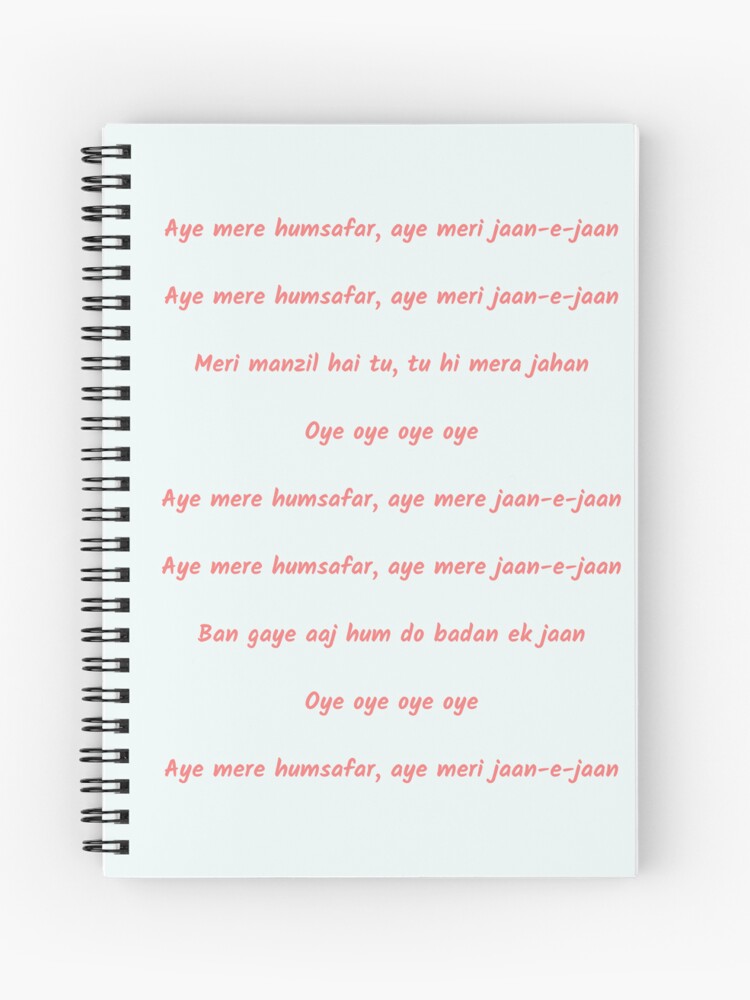 Aye mere humsafar, aye meri jaan-e-jaan
Aye mere humsafar, aye meri jaan-e-jaan
Meri manzil hai tu, tu hi mera jahan
Oye oye oye oye
Aye mere humsafar, aye mere jaan-e-jaan
Aye mere humsafar, aye mere jaan-e-jaan
Ban gaye aaj hum do badan ek jaan
Oye oye oye oye
Aye mere humsafar, aye meri jaan-e-jaan